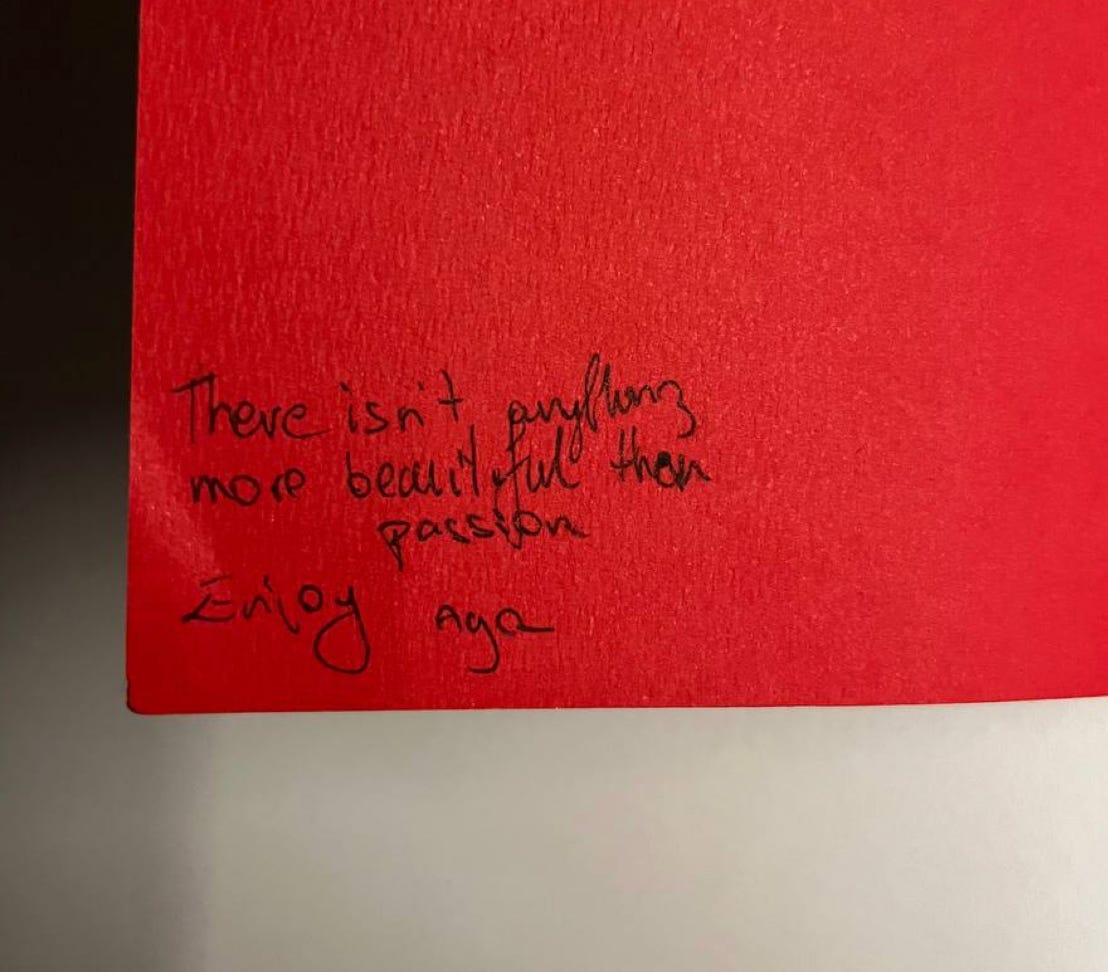 There isn't anything
more beautiful than
passion
Enjoy Aga